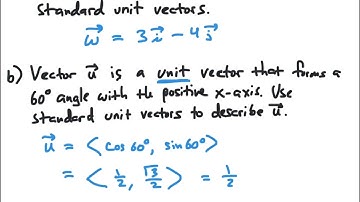 standard unit vectors.
w⃗ = 3i⃗ - 4j⃗
b) Vector u⃗ is a unit vector that forms a
60° angle with the positive x-axis. Use
standard unit vectors to describe u⃗.
u⃗ = ⟨cos60°, sin60°⟩
= ⟨1/2, √3/2⟩ = 1/2